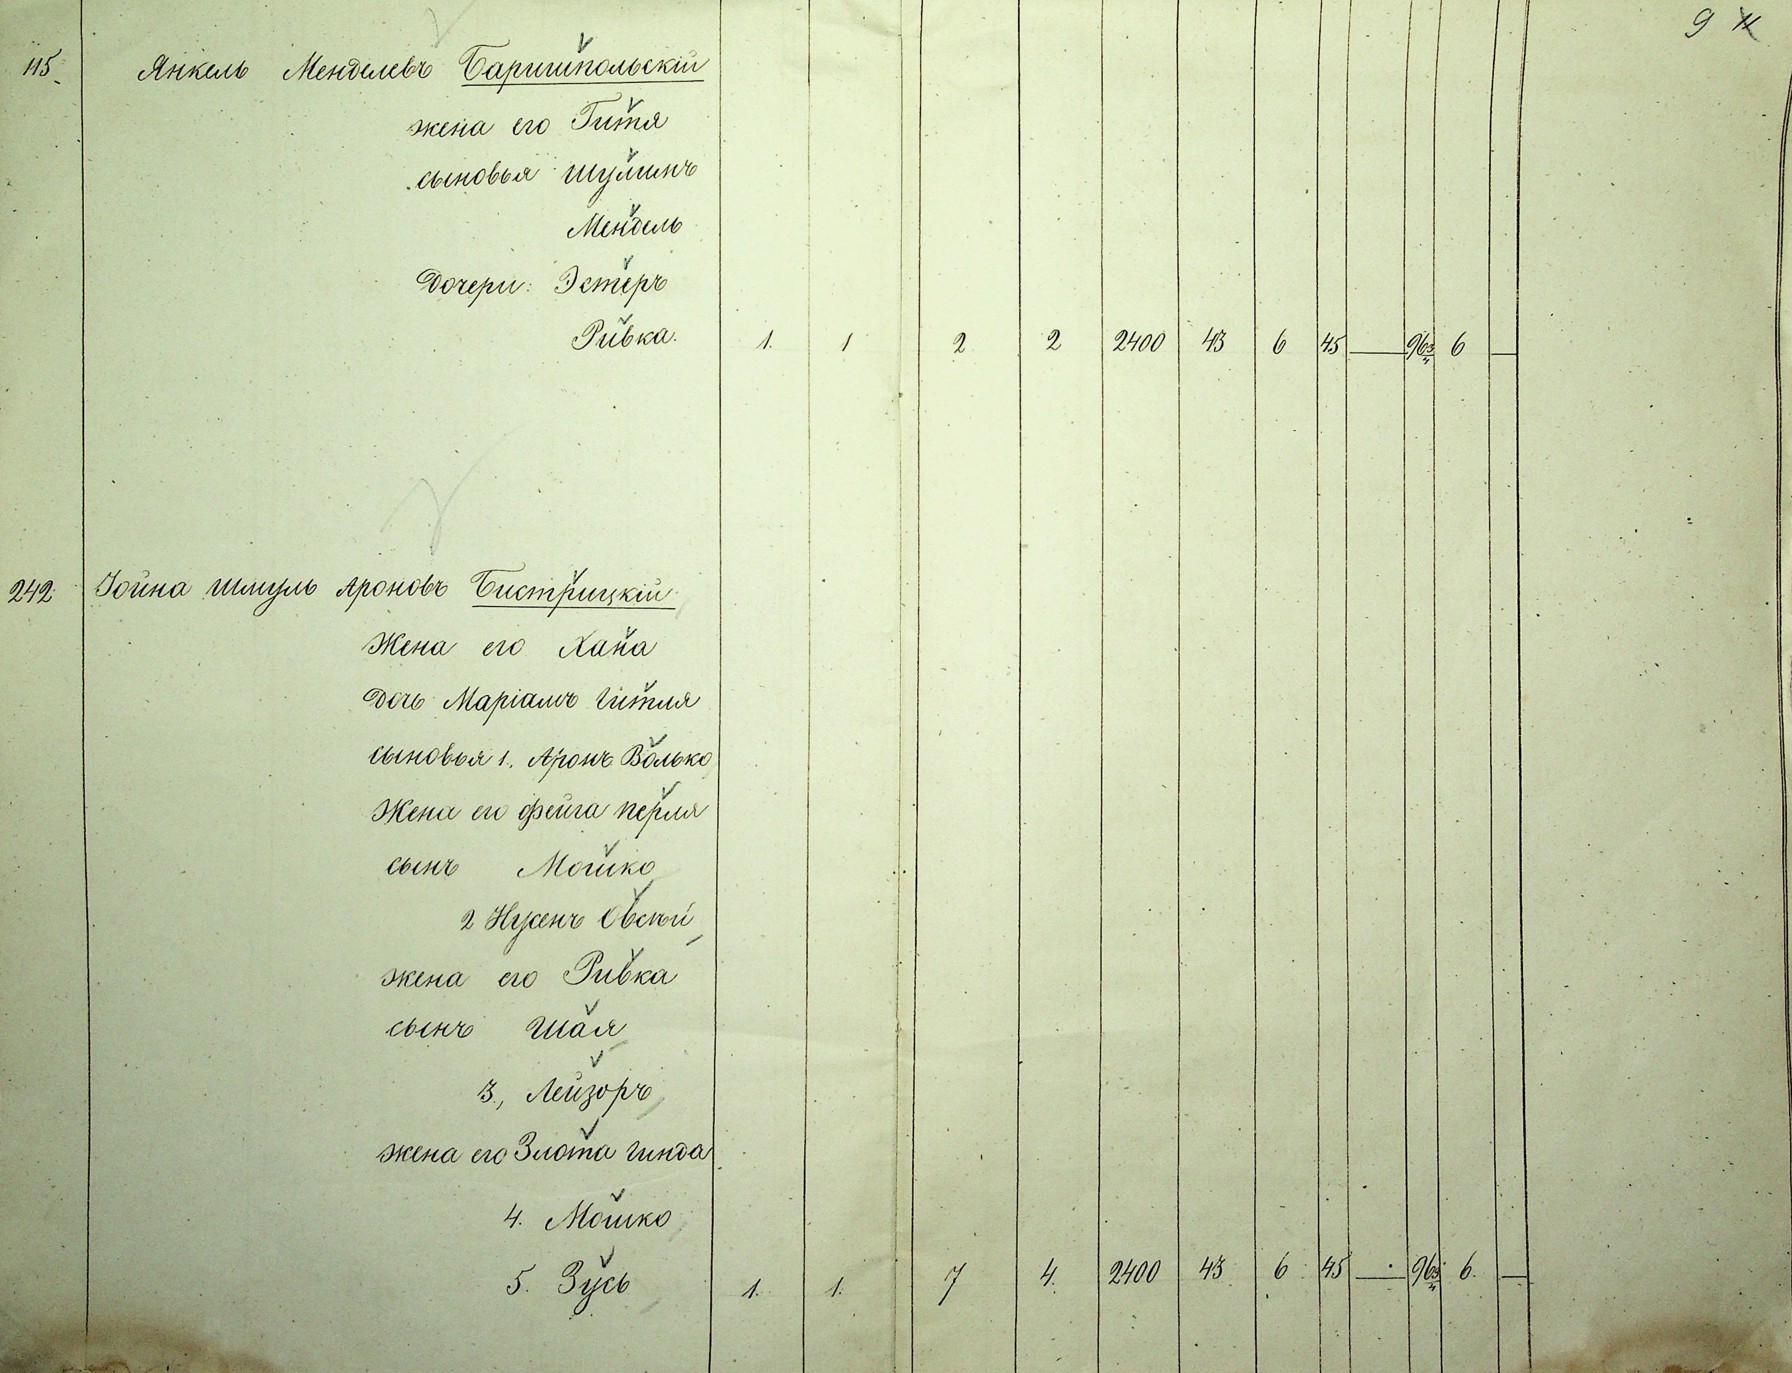 9 11
115 Янкель Менделевъ Баришпольскій
жена его Гитя
сыновья Шулимъ
Мендель
Дочери: Эстеръ
Ривка. 1. 1 2 2 2400 43 6 45 — 96 3/4 6 —
242 Іойна Шмуль Ароновъ Бистрицкій
Жена его Хана
Дочь Маріамъ Гитля
сыновья 1. Аронъ Волько
Жена его Фейга Перля
сынъ Мошко
2 Нусенъ Овсѣй
жена его Ривка
сынъ Шая
3., Лейзоръ
жена его Злота Гинда
4. Мошко
5. Зусь 1. 1. 7 4. 2400 43 6 45 — 96 3/4 6. —